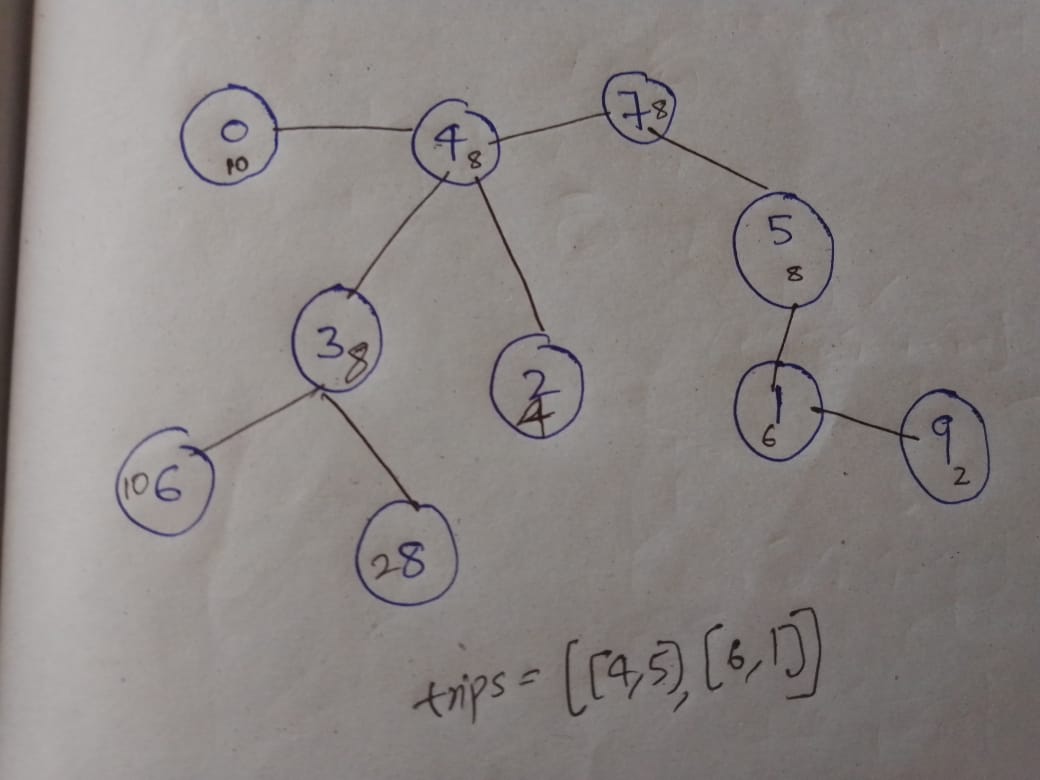 0
10
4
8
7 8
5
8
3 8
2
4
1
6
9
2
10 6
2 8
trips = [[4,5],[6,1]]